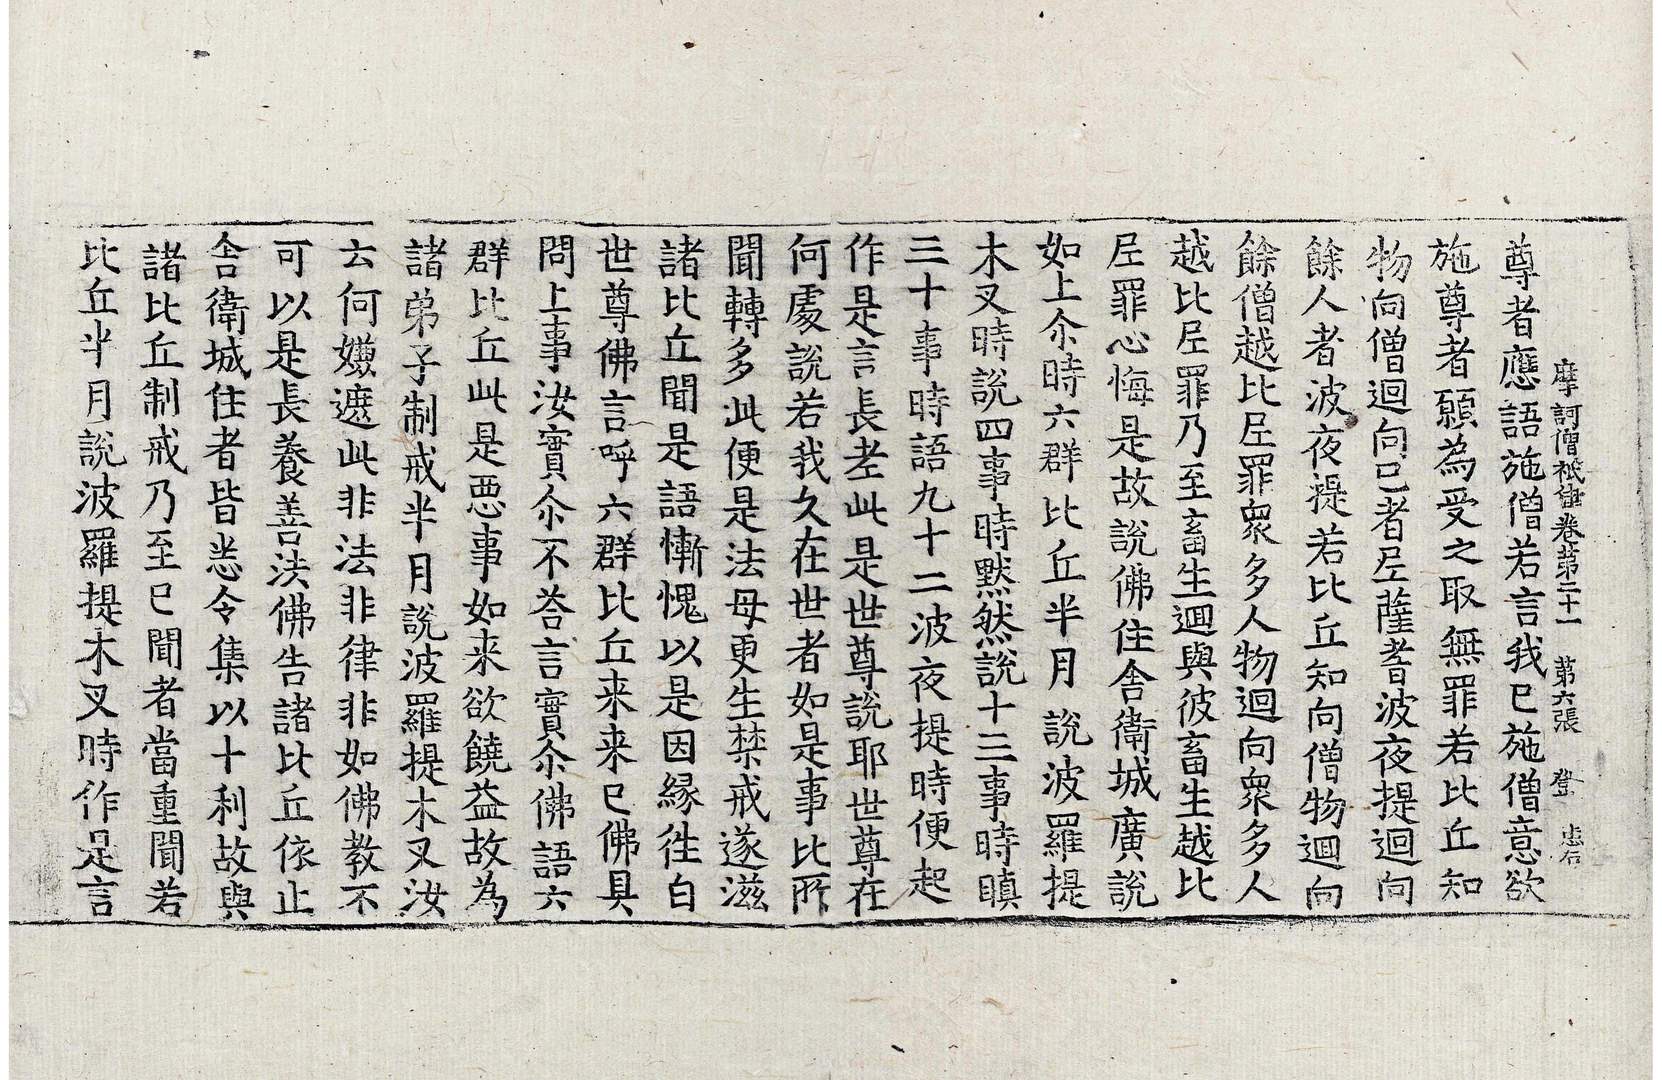 摩訶僧祇律卷第二十一　第六張　登　忠右
尊者應語施僧若言我已施僧意欲
施尊者願為受之取無罪若比丘知
物向僧迴向己者尼薩耆波夜提迴向
餘人者波夜提若比丘知向僧物迴向
餘僧越比尼罪衆多人物迴向衆多人
越比尼罪乃至畜生迴與彼畜生越比
尼罪心悔是故說佛住舍衛城廣說
如上尒時六群比丘半月說波羅提
木叉時說四事時默然說十三事時瞋
三十事時語九十二波夜提時便起
作是言長老此是世尊說耶世尊在
何處說若我久在世者如是事比所
聞轉多此便是法母更生禁戒遂滋
諸比丘聞是語慚愧以是因緣徃白
世尊佛言呼六群比丘来来已佛具
問上事汝實尒不荅言實尒佛語六
群比丘此是惡事如来欲饒益故為
諸弟子制戒半月說波羅提木叉汝
云何嫌遮此非法非律非如佛教不
可以是長養善法佛告諸比丘依止
舍衛城住者皆悉令集以十利故與
諸比丘制戒乃至已聞者當重聞若
比丘半月說波羅提木叉時作是言